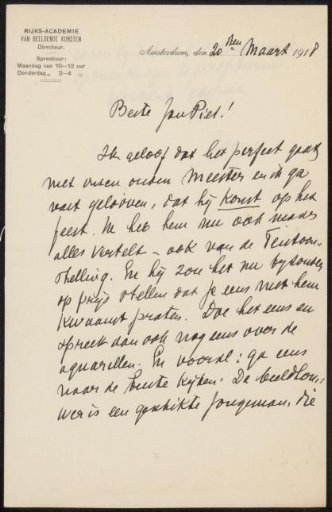 RIJKS-ACADEMIE
VAN BEELDENDE KUNSTEN
Directeur.
Spreekuur:
Maandag van 10–12 uur
Donderdag „ 2–4 „
Amsterdam, den 20sten Maart 1918
Beste Jan Piet!
Ik geloof dat het perfect gaat
met onzen ouden Meester en ik ga
vast gelooven, dat hij komt op het
feest. Ik heb hem nu ook maar
alles verteld – ook van de Tentoon-
stelling. En hij zou het nu byzonder
op prijs stellen dat je eens met hem
kwaamt praten. Doe het eens en
spreek dan ook nog eens over de
aquarellen. En vooral: ga eens
naar de buste kijken. De beeldhou-
wer is een geschikte jongeman, die